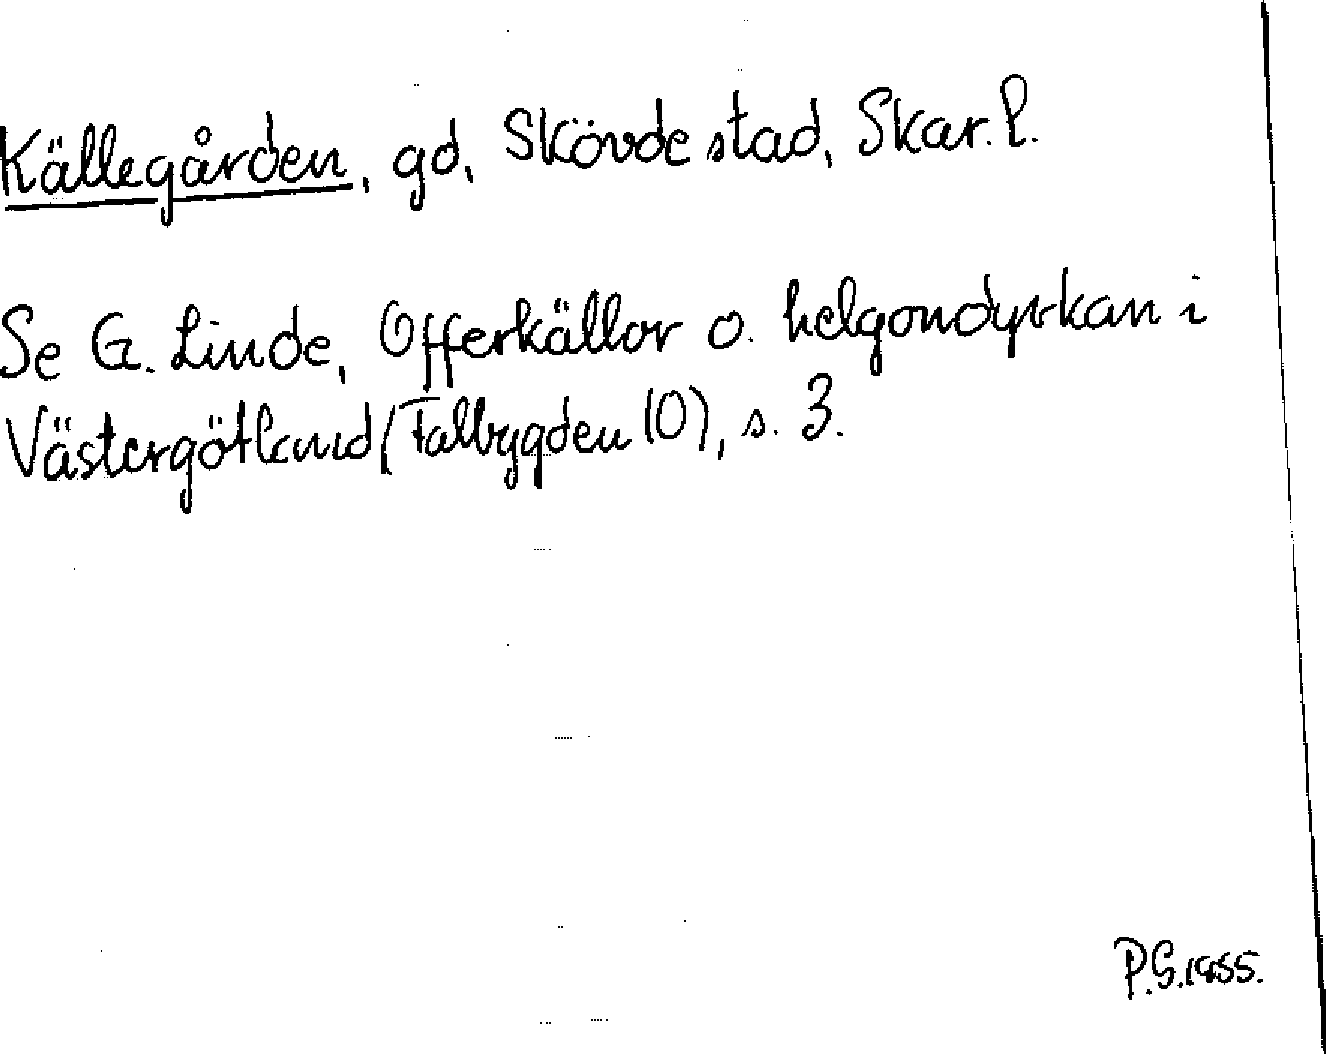 Källegården, gd, Skövde stad, Skar. l.
Se G. Linde, Offerkällor o. helgondyrkan i
Västergötland (Falbygden 10), s. 3.
P.G. 1955.